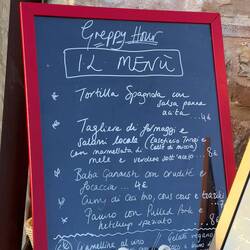 Greppy Hour
IL MENÙ
* Tortilla Spagnola con
salsa panna
acida ...4€
* Tagliere di formaggi e
salumi locali
con marmellata di
mele e verdure sott'aceto ...8€
* Baba Ganoush con crudité e
focaccia ...4€
* di Ceci bio, cous cous e
* Panino con Pulled Pork e
ketchup speziato
vino // Gelato vegano